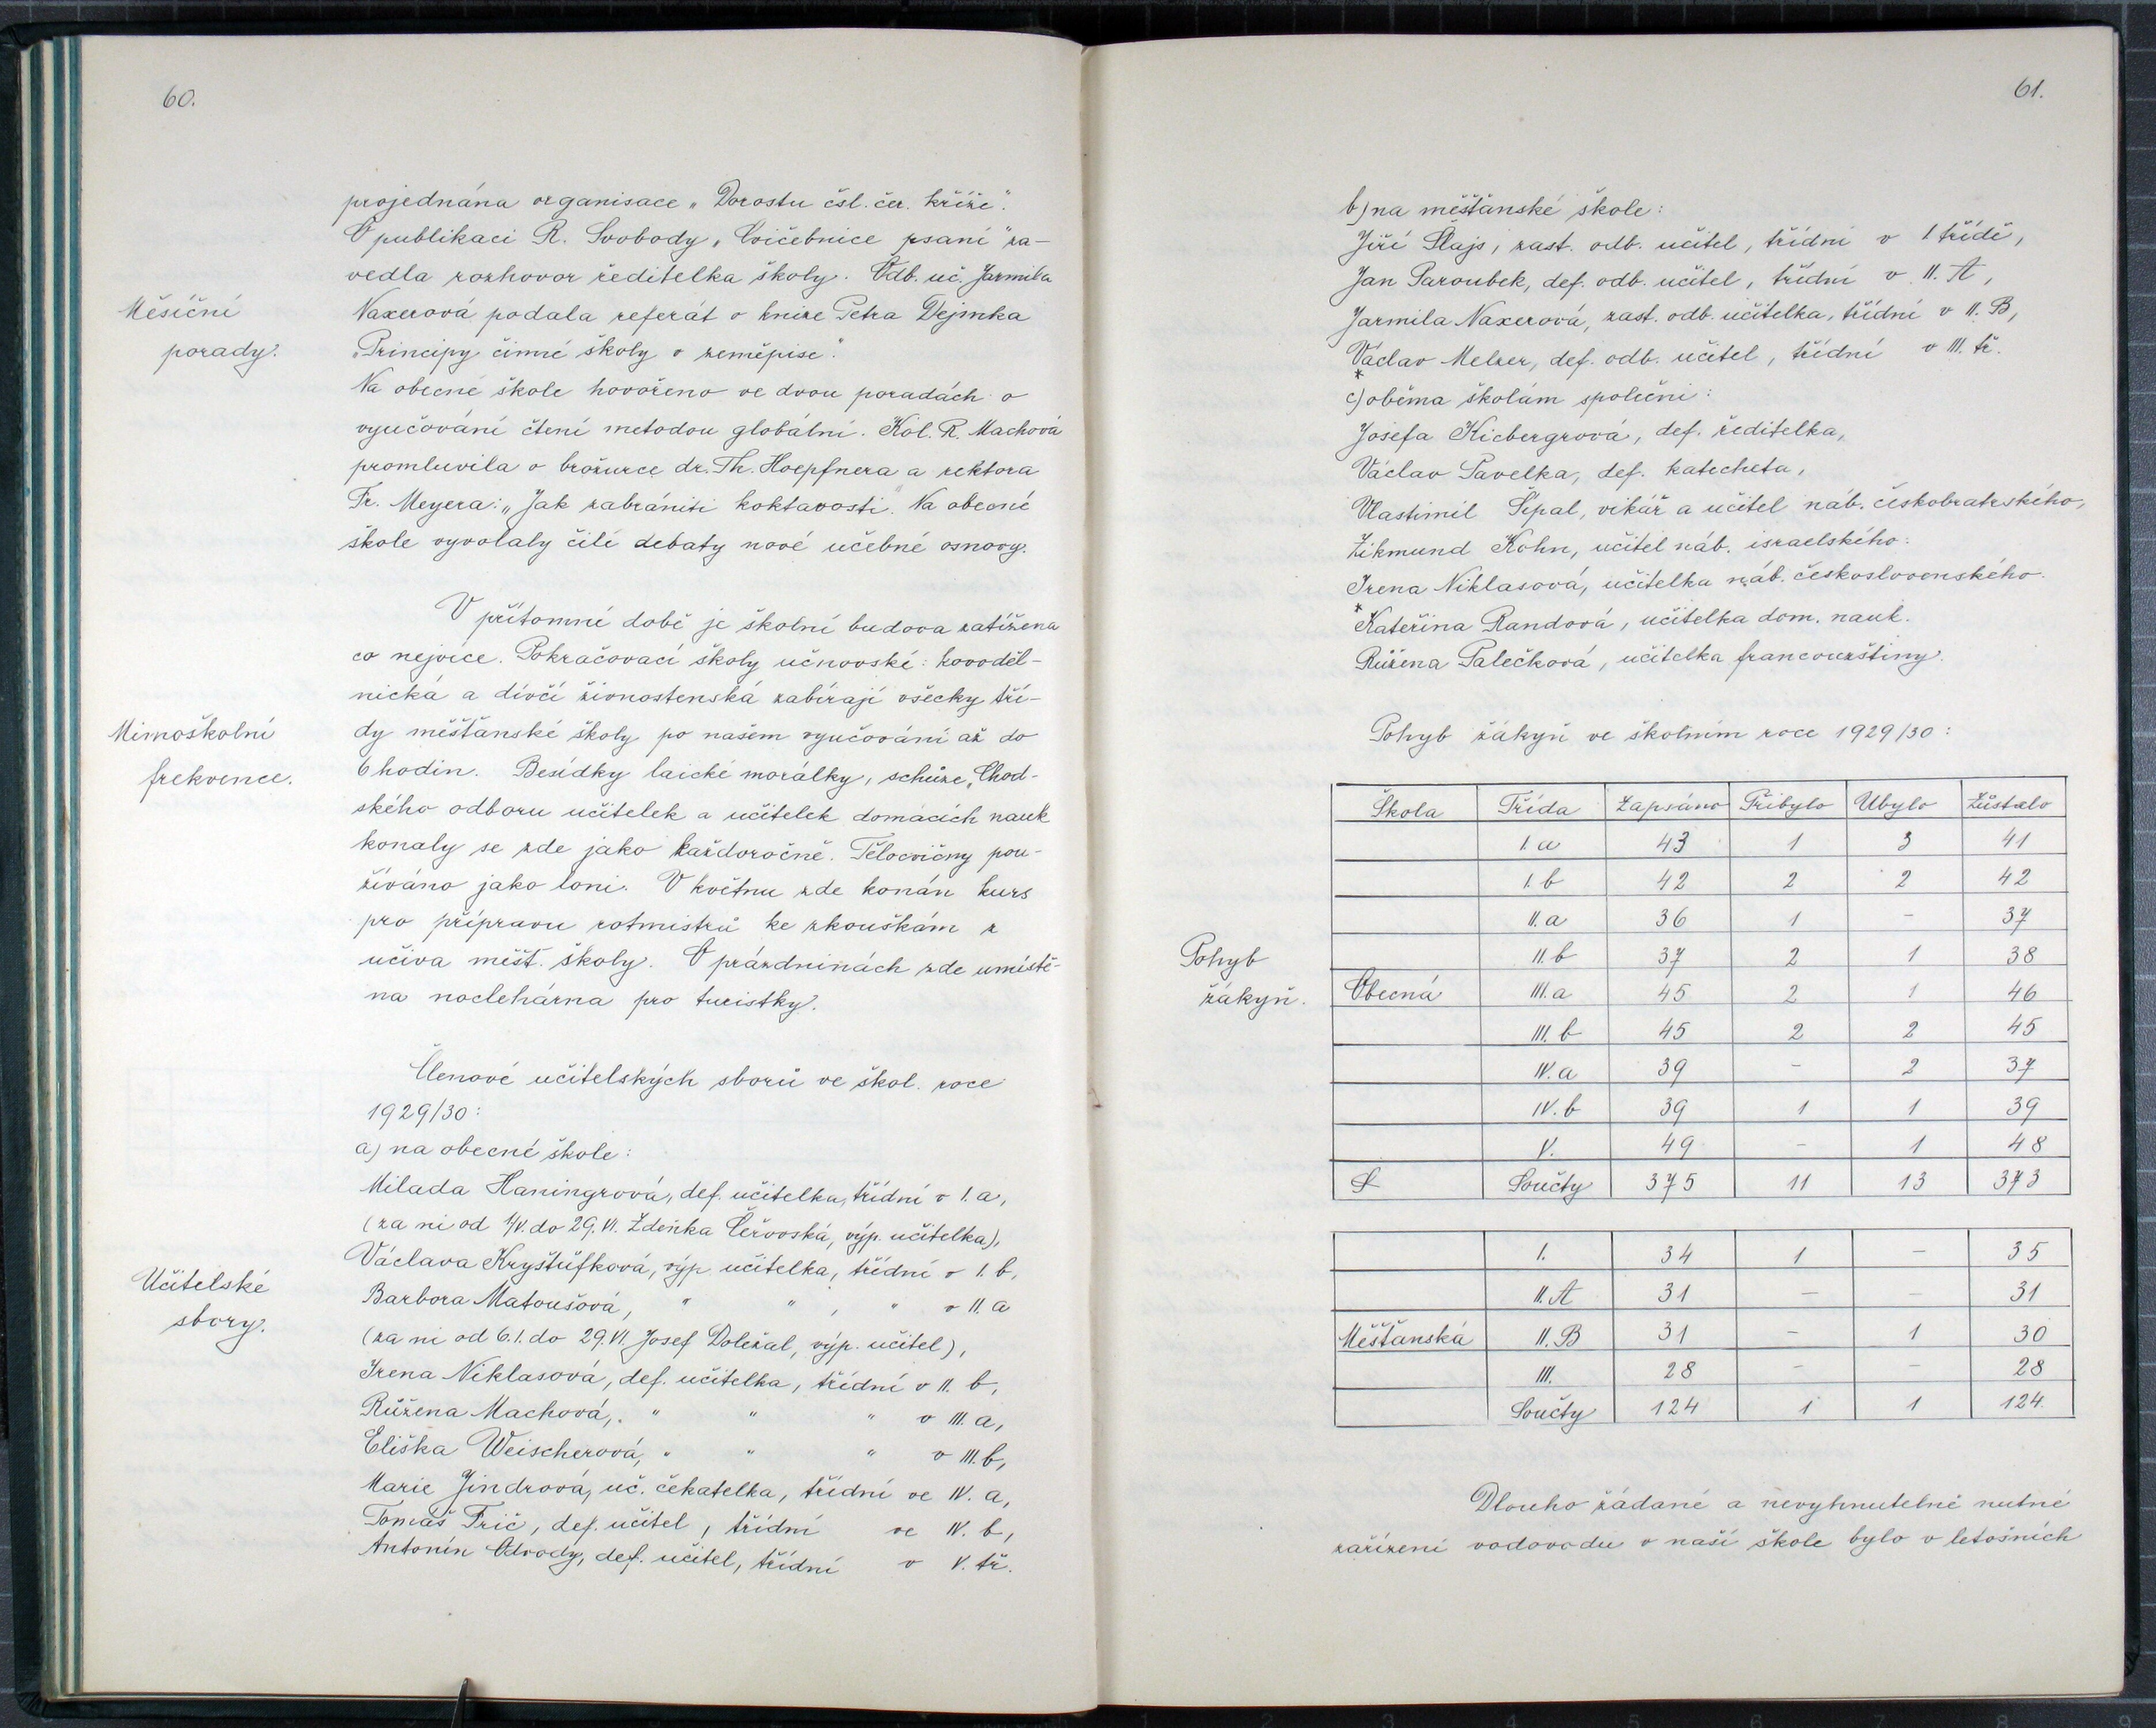 60.
projednána organisace „Dorostu čsl. čer. kříže“.
O publikaci R. Svobody „Cvičebnice psaní“ za-
vedla rozhovor ředitelka školy. Odb. uč. Jarmila
Měsíční
porady.
Naxerová podala referát o knize Petra Dejmka
„Principy činné školy v zeměpise“.
Na obecné škole hovořeno ve dvou poradách o
vyučování čtení metodou globální. Kol. R. Machová
promluvila o brožurce dr. Th. Hoepfnera a rektora
Fr. Meyera: „Jak zabrániti koktavosti“. Na obecné
škole vyvolaly čilé debaty nové učebné osnovy.
V přítomné době je školní budova zatížena
co nejvíce. Pokračovací školy učňovské: kovoděl-
nická a dívčí živnostenská zabírají všecky tří-
Mimoškolní
frekvence.
dy měšťanské školy po našem vyučování až do
6 hodin. Besídky laické morálky, schůze „Chod-
ského odboru učitelek a učitelek domácích nauk
konaly se zde jako každoročně. Tělocvičny pou-
žíváno jako loni. V květnu zde konán kurs
pro přípravu rotmistrů ke zkouškám z
učiva měšť. školy. O prázdninách zde umístě-
na noclehárna pro turistky.
Členové učitelských sborů ve škol. roce
1929/30:
a) na obecné škole:
Milada Haningrová, def. učitelka, třídní v I. a,
(za ni od 1/V. do 29. VI. Zdeňka Čeřovská, výp. učitelka),
Václava Kryštůfková, výp. učitelka, třídní v I. b,
Učitelské
sbory.
Barbora Matoušová, " " , " v II. a
(za ni od 6. I. do 29. VI. Josef Doležal, výp. učitel),
Irena Niklasová, def. učitelka, třídní v II. b,
Růžena Machová, " " " v III. a,
Eliška Weischerová, " " " v III. b,
Marie Jindrová, uč. čekatelka, třídní ve IV. a,
Tomáš Frič, def. učitel, třídní ve IV. b,
Antonín Odvody, def. učitel, třídní v V. tř.
61.
b) na měšťanské škole:
Jiří Šlajs, zast. odb. učitel, třídní v I třídě,
Jan Paroubek, def. odb. učitel, třídní v II. A,
Jarmila Naxerová, zast. odb. učitelka, třídní v II. B,
Václav Melzer, def. odb. učitel, třídní v III. tř.
*
c) oběma školám společni:
Josefa Kicbergrová, def. ředitelka,
Václav Pavelka, def. katecheta,
Vlastimil Šípal, vikář a učitel náb. českobratrského,
Zikmund Kohn, učitel náb. israelského.
Irena Niklasová, učitelka náb. československého.
* Kateřina Randová, učitelka dom. nauk.
Růžena Palečková, učitelka francouzštiny.
Pohyb žákyň ve školním roce 1929/30:
Škola Třída Zapsáno Přibylo Ubylo Zůstalo
I. a 43 1 3 41
I. b 42 2 2 42
II. a 36 1 - 37
Pohyb
žákyň.
II. b 37 2 1 38
Obecná III. a 45 2 1 46
III. b 45 2 2 45
IV. a 39 - 2 37
IV. b 39 1 1 39
V. 49 - 1 48
Součty 375 11 13 373
I. 34 1 - 35
II. A 31 - - 31
Měšťanská II. B 31 - 1 30
III. 28 - - 28
Součty 124 1 1 124
Dlouho žádané a nevyhnutelně nutné
zařízení vodovodu v naší škole bylo v letošních